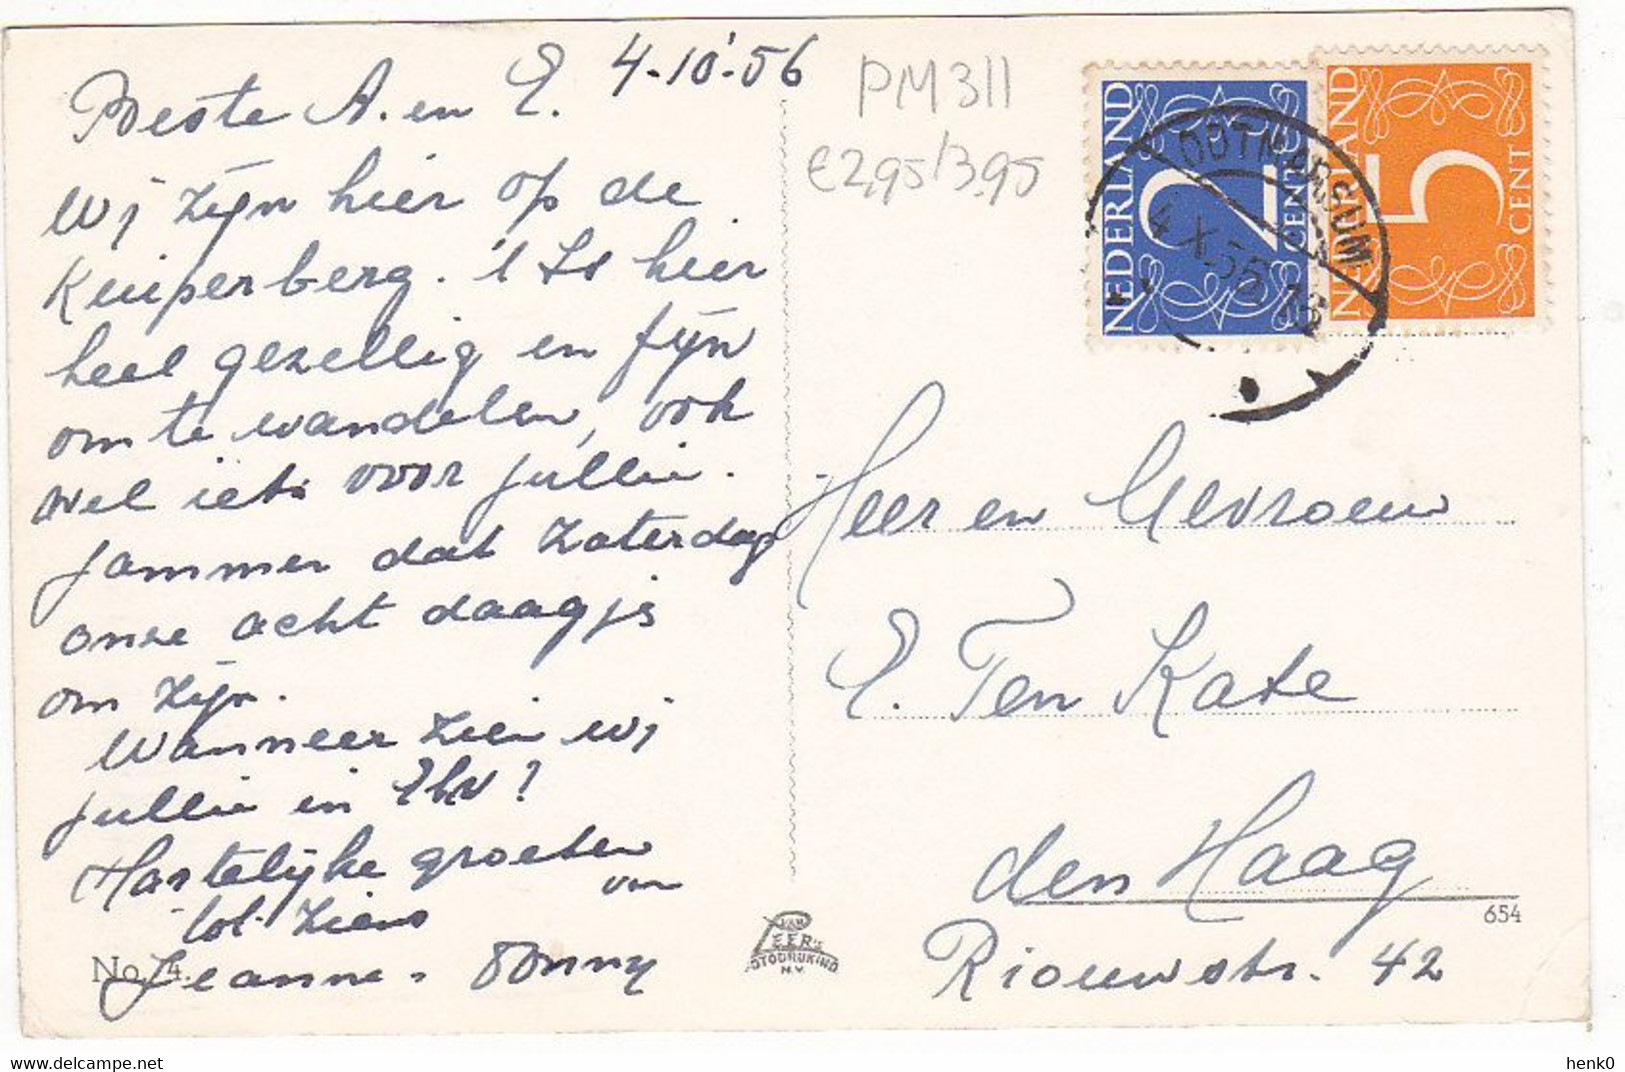 4-10'-56
Beste A. en E.
Wij zijn hier op de
Kuiperberg. 't Is hier
heel gezellig en fijn
om te wandelen, ook
wel iets voor jullie.
Jammer dat Zaterdag
onze acht daagjs
om zijn.
Wanneer zien wij
jullie in Ehv?
Hartelijke groeten
van
tot ziens
Jeanne.
No. 4.
PM 311
€2,95/3,95
NEDERLAND
2
CENT
NEDERLAND
5
CENT
OOTMARSUM
4 X.56 18
Heer en Mevrouw
E. Ten Kate
den Haag
Riouwstr. 42
654
VAN
LEER'S
FOTODRUKIND
N.V.
henk0